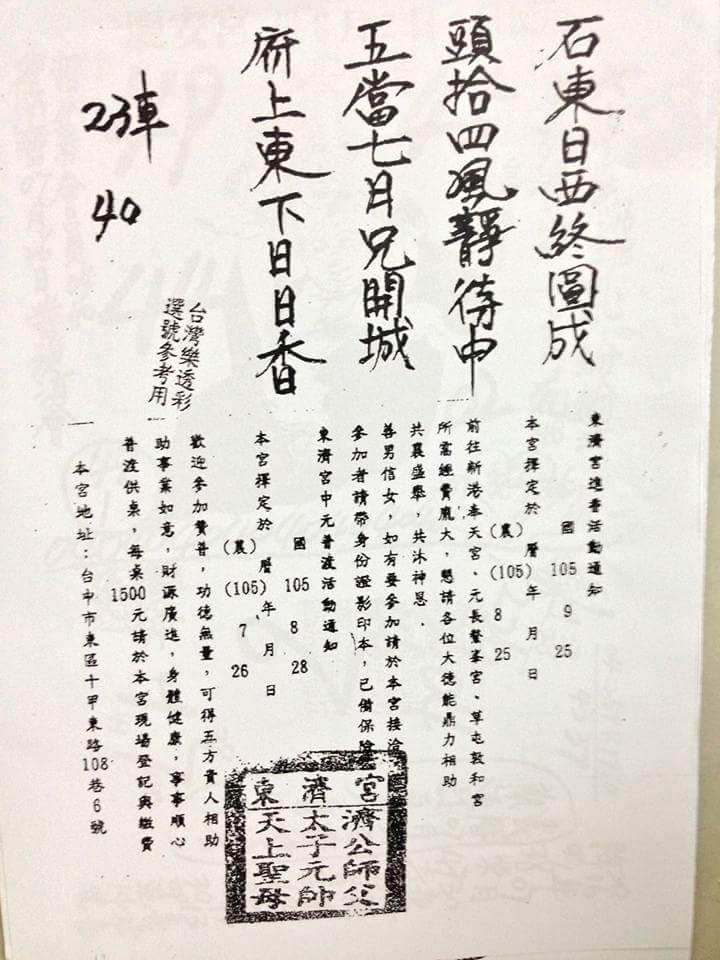 石東日西終圖成
頭拾四風靜待申
五當七月兄開城
府上東下日日香
23車
40
台灣樂透彩
選號參考用
東濟宮進香活動通知
國 105 9 25
本宮擇定於 曆 年 月 日
(農) (105) 8 25
前往新港奉天宮、元長鰲峯宮、草屯敦和宮
所需經費龐大，懇請各位大德能鼎力相助
共襄盛舉，共沐神恩．
善男信女，如有要參加請於本宮接洽
參加者請帶身份證影印本，已備保險
東濟宮中元普渡活動通知
國 105 8 28
本宮擇定於 曆 年 月 日
(農) (105) 7 26
歡迎參加贊普，功德無量，可得五方貴人相助
助事業如意，財源廣進，身體健康，事事順心
普渡供桌，每桌1500元請於本宮現場登記與繳費
本宮地址：台中市東區十甲東路108巷6號
東濟宮
濟公師父
太子元帥
天上聖母